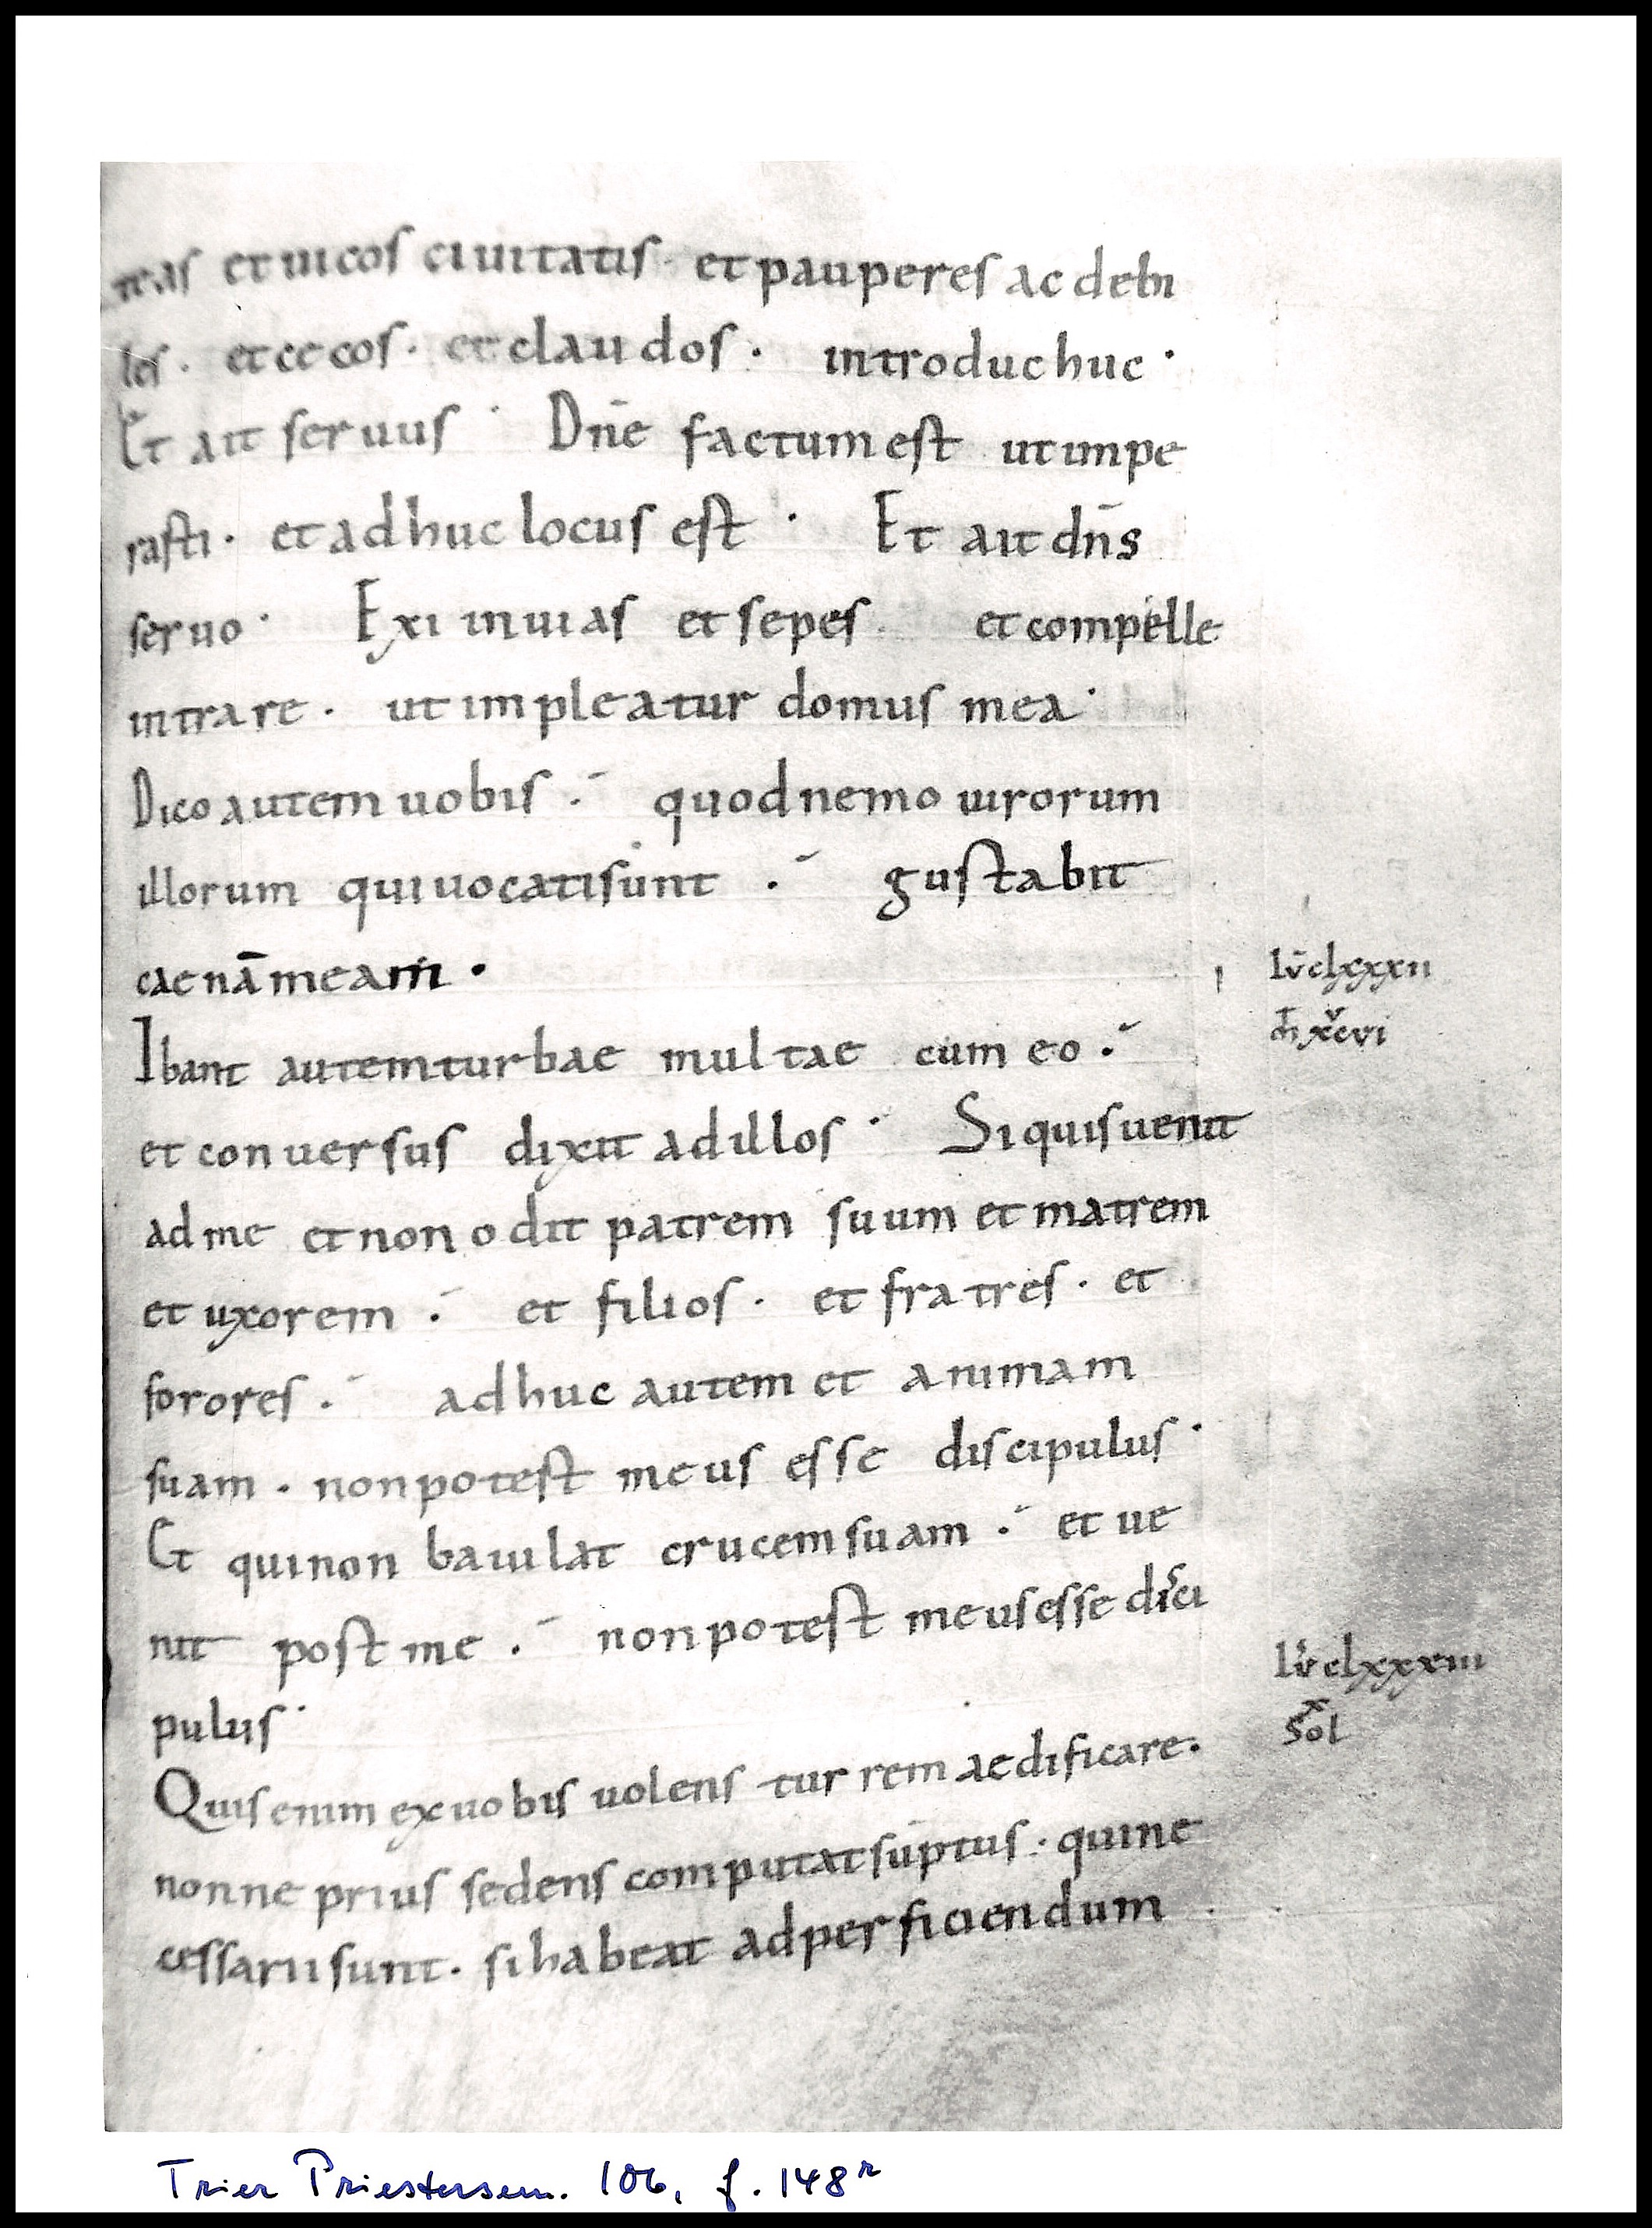 teas et uicos ciuitatis · et pauperes ac debi
les · et cecos · et claudos · introduc huc ·
Et ait seruus · Dn̄e factum est ut impe
rasti · et adhuc locus est · Et ait dn̄s
seruo · Exi in uias et sepes · et compelle
intrare · ut impleatur domus mea ·
Dico autem uobis · quod nemo uirorum
illorum qui uocati sunt · gustabit
caenā meam ·
Ibant autem turbae multae cum eo ·
et conuersus dixit ad illos · Si quis uenit
ad me et non odit patrem suum et matrem
et uxorem · et filios · et fratres · et
sorores · adhuc autem et animam
suam · non potest meus esse discipulus ·
Et qui non baiulat crucem suam · et ue
nit post me · non potest meus esse disci
pulus ·
Quis enim ex uobis uolens turrem aedificare ·
nonne prius sedens computat sūptus · qui ne
cessarii sunt · si habeat ad perficiendum
lū clxxxii
m̄ xcvi
lū clxxxiii
x
sol
Trier Priestersem. 106, f. 148r